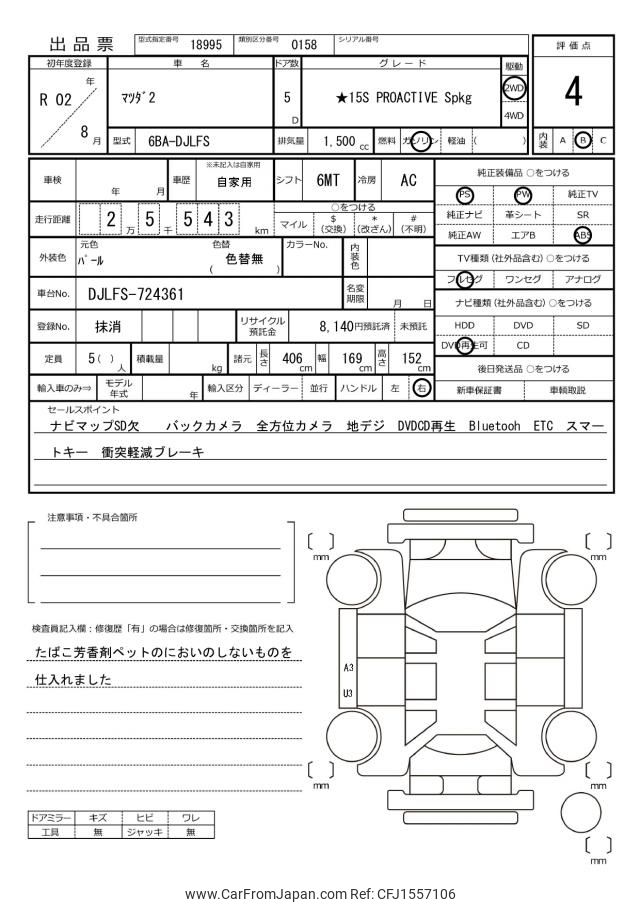 出品票
型式指定番号 18995 類別区分番号 0158 シリアル番号
評価点
4
内装 A B C
初年度登録 車名 ドア数 グレード 駆動
R 02 年 8 月
マツダ2
5 D
★15S PROACTIVE Spkg
2WD
4WD
型式 6BA-DJLFS 排気量 1,500 cc 燃料 ガソリン 軽油 ( )
車検 年 月 車歴 ※未記入は自家用 自家用 シフト 6MT 冷房 AC
走行距離 2 5 543 万 千 km
○をつける
マイル $ (交換) * (改ざん) # (不明)
外装色 元色 パール 色替 ( 色替無 ) カラーNo. 内装色
車台No. DJLFS-724361 名変期限 月 日
登録No. 抹消 リサイクル預託金 8,140円預託済 未預託
定員 5( )人 積載量 kg 諸元 長さ 406 cm 幅 169 cm 高さ 152 cm
輸入車のみ⇒ モデル年式 年 輸入区分 ディーラー 並行 ハンドル 左 右
純正装備品 ○をつける
PS PW 純正TV
純正ナビ 革シート SR
純正AW エアB ABS
TV種類 (社外品含む) ○をつける
フルセグ ワンセグ アナログ
ナビ種類 (社外品含む) ○をつける
HDD DVD SD
DVD再生可 CD
後日発送品 ○をつける
新車保証書 車輌取説
セールスポイント
ナビマップSD欠 バックカメラ 全方位カメラ 地デジ DVDCD再生 Bluetooh ETC スマー
トキー 衝突軽減ブレーキ
注意事項・不具合箇所
検査員記入欄:修復歴「有」の場合は修復箇所・交換箇所を記入
たばこ芳香剤ペットのにおいのしないものを
仕入れました
ドアミラー キズ ヒビ ワレ
工具 無 ジャッキ 無
mm
mm
A3
U3
mm
mm
mm
www.CarFromJapan.com Ref: CFJ1557106